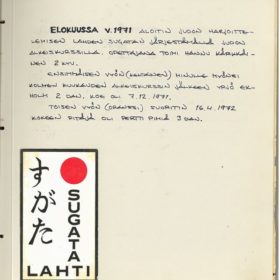 ELOKUUSSA V. 1971 ALOITIN JUDON HARJOITTE-
LEMISEN LAHDEN SUGATAN JÄRJESTÄMÄLLÄ JUDON
ALKEISKURSSILLA. OPETTAJANA TOIMI HANNU KÄRKKÄI-
NEN 2 KYU.
ENSIMMÄISEN VYÖN (KELTAINEN) MINULLE MYÖNSI
KOLMEN KUUKAUDEN ALKEISKURSSIN JÄLKEEN YRJÖ EK-
HOLM 2 DAN. KOE OLI 7.12.1971.
TOISEN VYÖN (ORANSSI) SUORITIN 16.4.1972
KOKEEN PITÄJÄ OLI PERTTI PIHA 3 DAN.
すがた
SUGATA
LAHTI